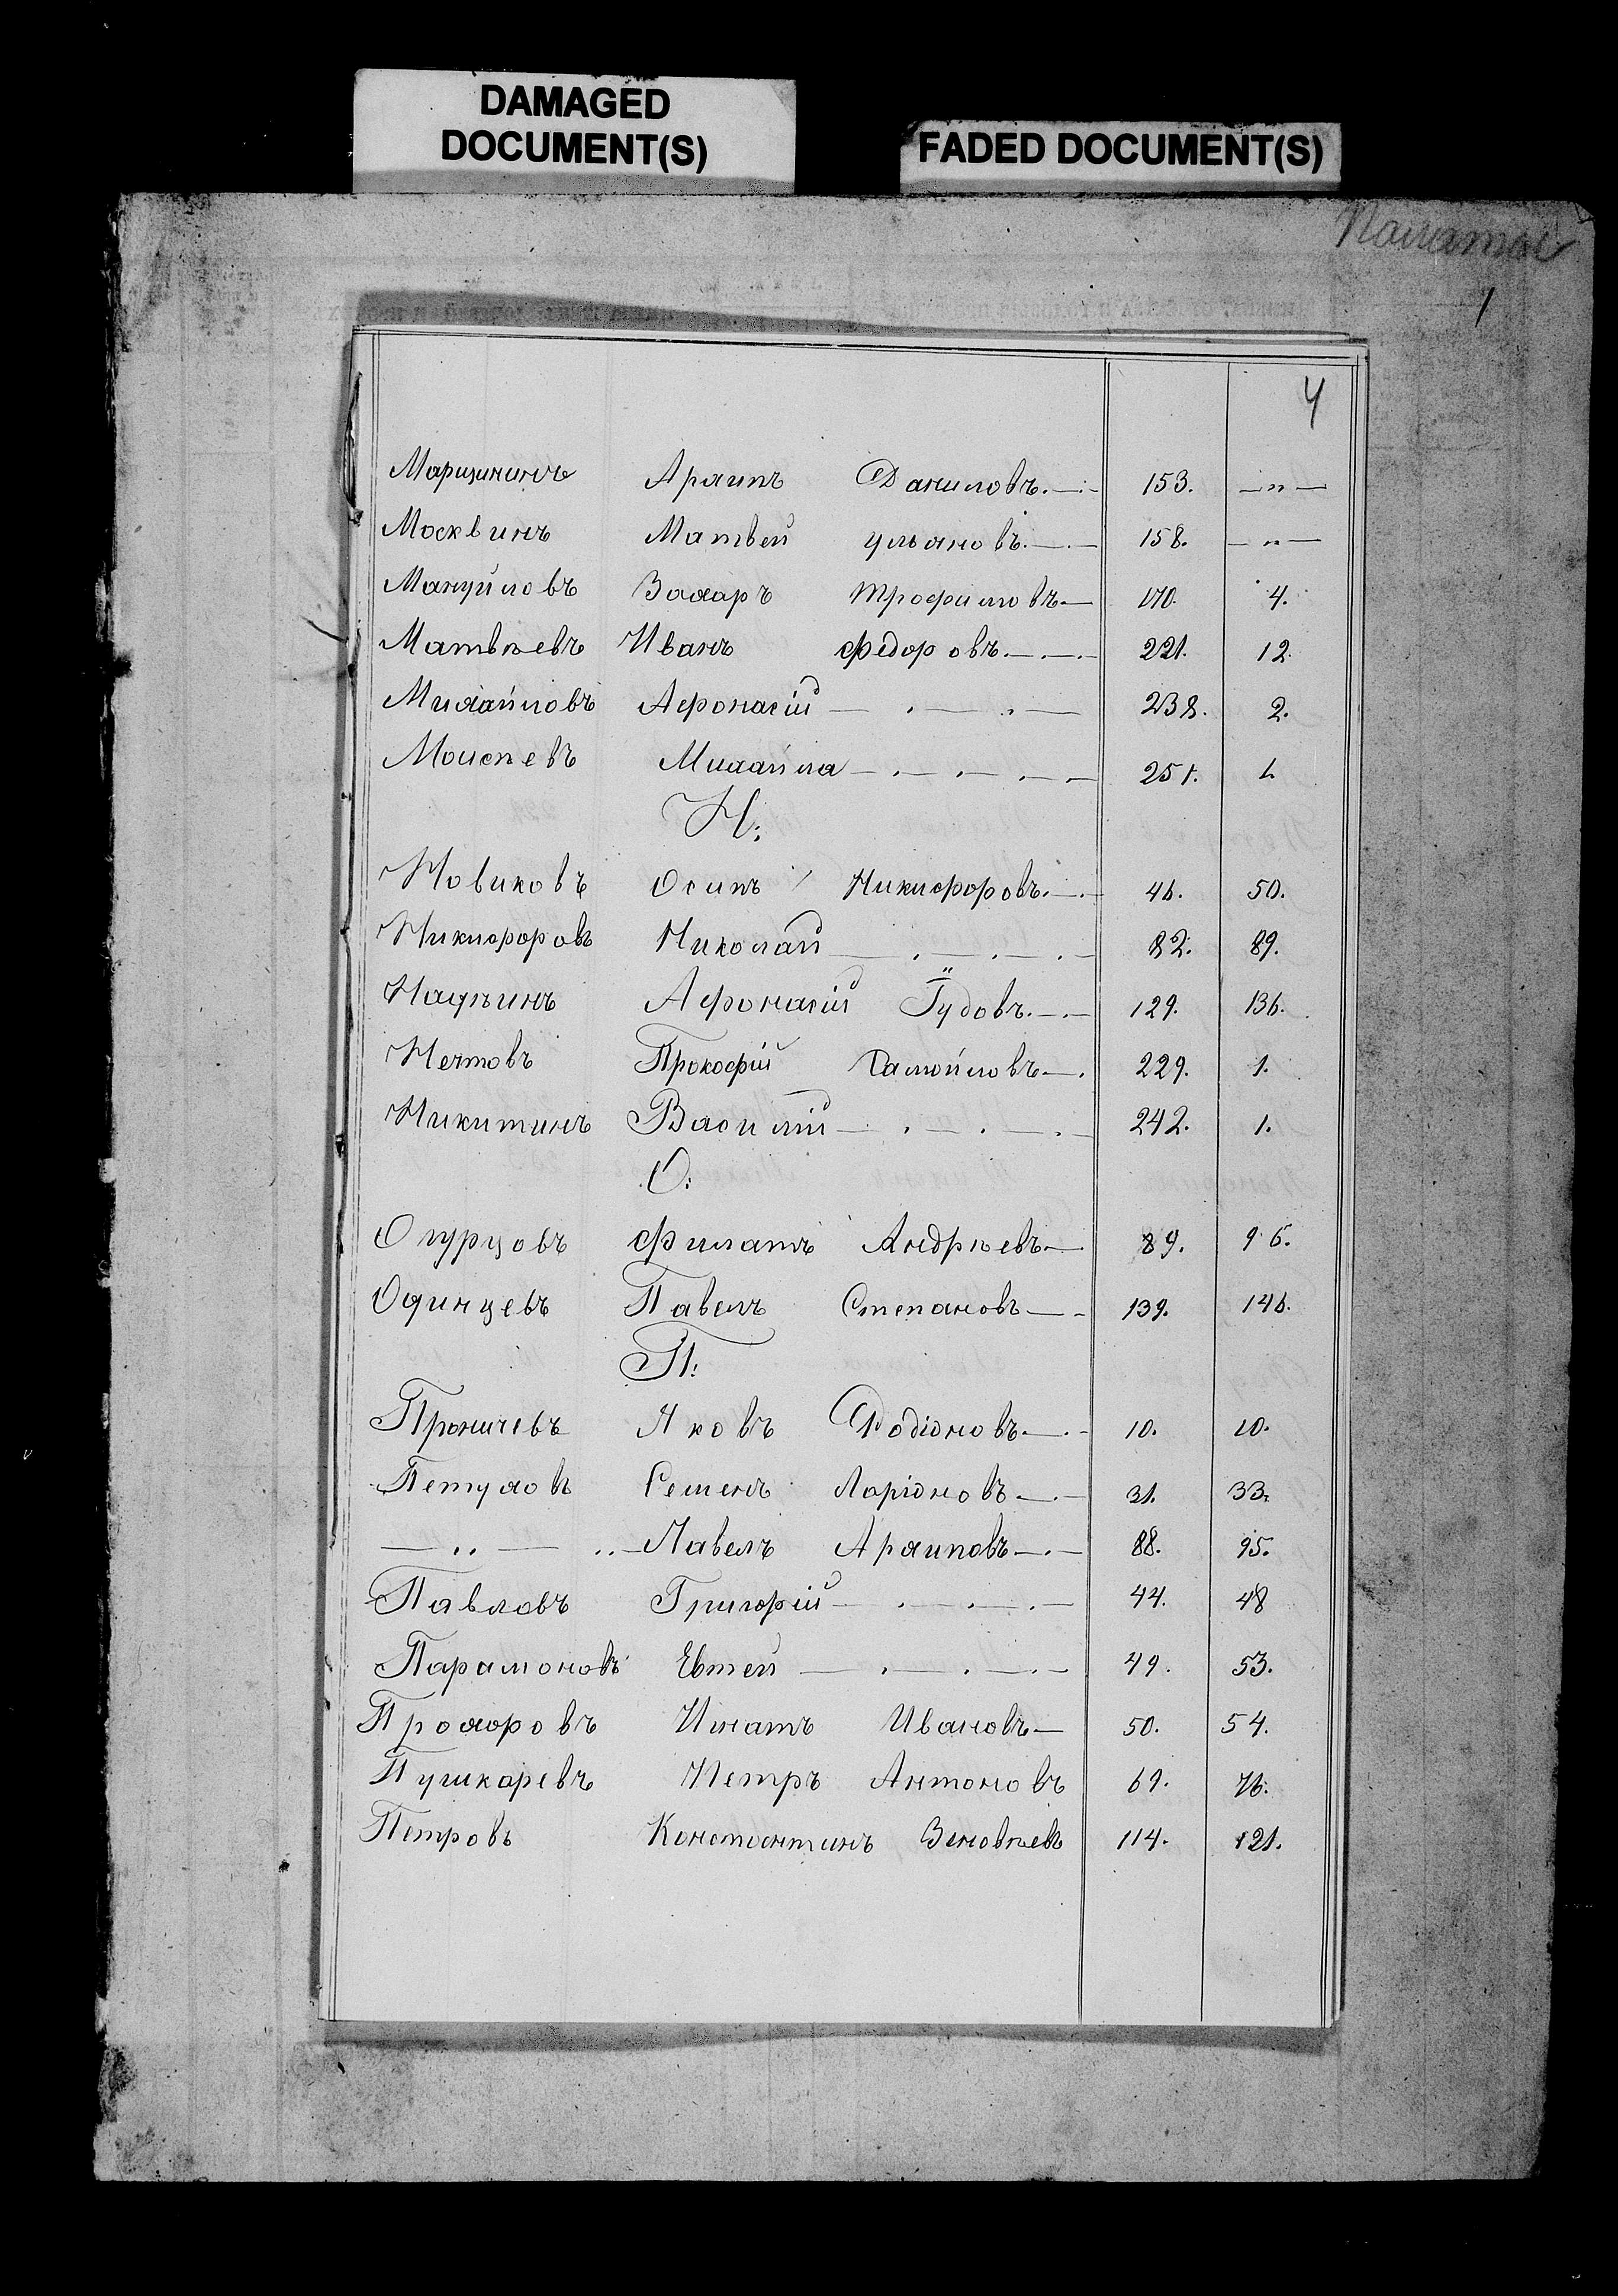 DAMAGED
DOCUMENT(S)
FADED DOCUMENT(S)
1
4
Марицининъ Архипъ Даниловъ.—.— 153. —„—
Москвинъ Матвей ульяновъ.—.— 158. —„—
Мануйловъ Захаръ трофимовъ.— 170. 4.
Матвѣевъ Иванъ федоровъ.—.—.— 221. 12.
Михайловъ Афонасій — . — . — 238. 2.
Моисѣевъ Михайла — . — . — . — . — 251. 1.
Н:
Новиковъ Осипъ Никифоровъ.—.— 46. 50.
Никифоровъ Николай — . — . — . — 82. 89.
Афонасій Гудовъ.—.— 129. 136.
Нечтовъ Прокофій Самойловъ—. 229. 1.
Никитинъ Василій — . — . — . — 242. 1.
О:
Огурцовъ филатъ Андрѣевъ.— 89. 96.
Одинцевъ Павелъ Степановъ — - 139. 146.
П:
Проничевъ Яковъ Родіоновъ.—.- 10. 10.
Петуховъ Семенъ Ларіоновъ —.— 31. 33.
— „ — „ — Павелъ Архиповъ—.— 88. 95.
Павловъ Григорій — . — . — . — 44. 48
Парамоновъ Евтей — . — . — . — 49. 53.
Прохоровъ Игнатъ Ивановъ — 50. 54.
Пушкаревъ Петръ Антоновъ 69. 76.
Петровъ Константинъ Зиновѣевъ 114. 121.